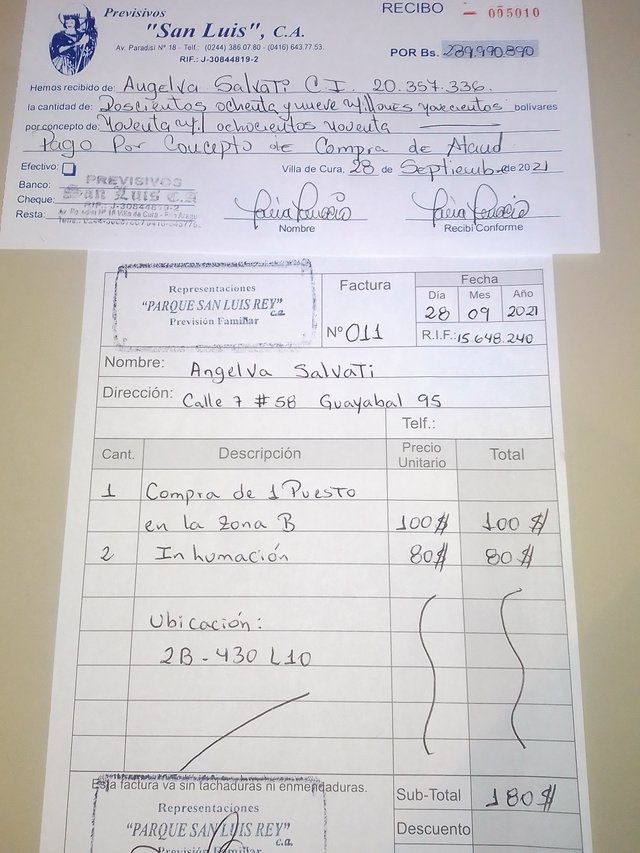 Previsivos
"San Luis", C.A.
Av. Paradisi Nº 18 - Telf.: (0244) 386.07.80 - (0416) 643.77.53.
RIF.: J-30844819-2
RECIBO
005010
POR Bs. 289.990.890
Hemos recibido de: Angelva Salvati C.I. 20.357.336.
la cantidad de: Doscientos ochenta y nueve millones novecientos bolivares
por concepto de: Noventa mil ochocientos noventa
Pago Por Concepto de Compra de Ataud
Efectivo: Villa de Cura, 28 de Septiembre de 2021
Banco:
Cheque:
Resta:
PREVISIVOS
San Luis C.A
RIF.: J-30844819-2
Nombre
Recibí Conforme
Representaciones
"PARQUE SAN LUIS REY"
c.a.
Previsión Familiar
Factura
Nº 011
Fecha
Día Mes Año
28 09 2021
R.I.F.: 15.648.240
Nombre: Angelva Salvati
Dirección: Calle 7 # 58 Guayabal 95
Telf.:
Cant. Descripción Precio Unitario Total
1 Compra de 1 Puesto
en la zona B 100$ 100$
2 Inhumación 80$ 80$
Ubicación:
2B - 430 L10
Esta factura va sin tachaduras ni enmendaduras.
Sub-Total 180$
Descuento
Representaciones
"PARQUE SAN LUIS REY"
c.a.
Previsión Familiar